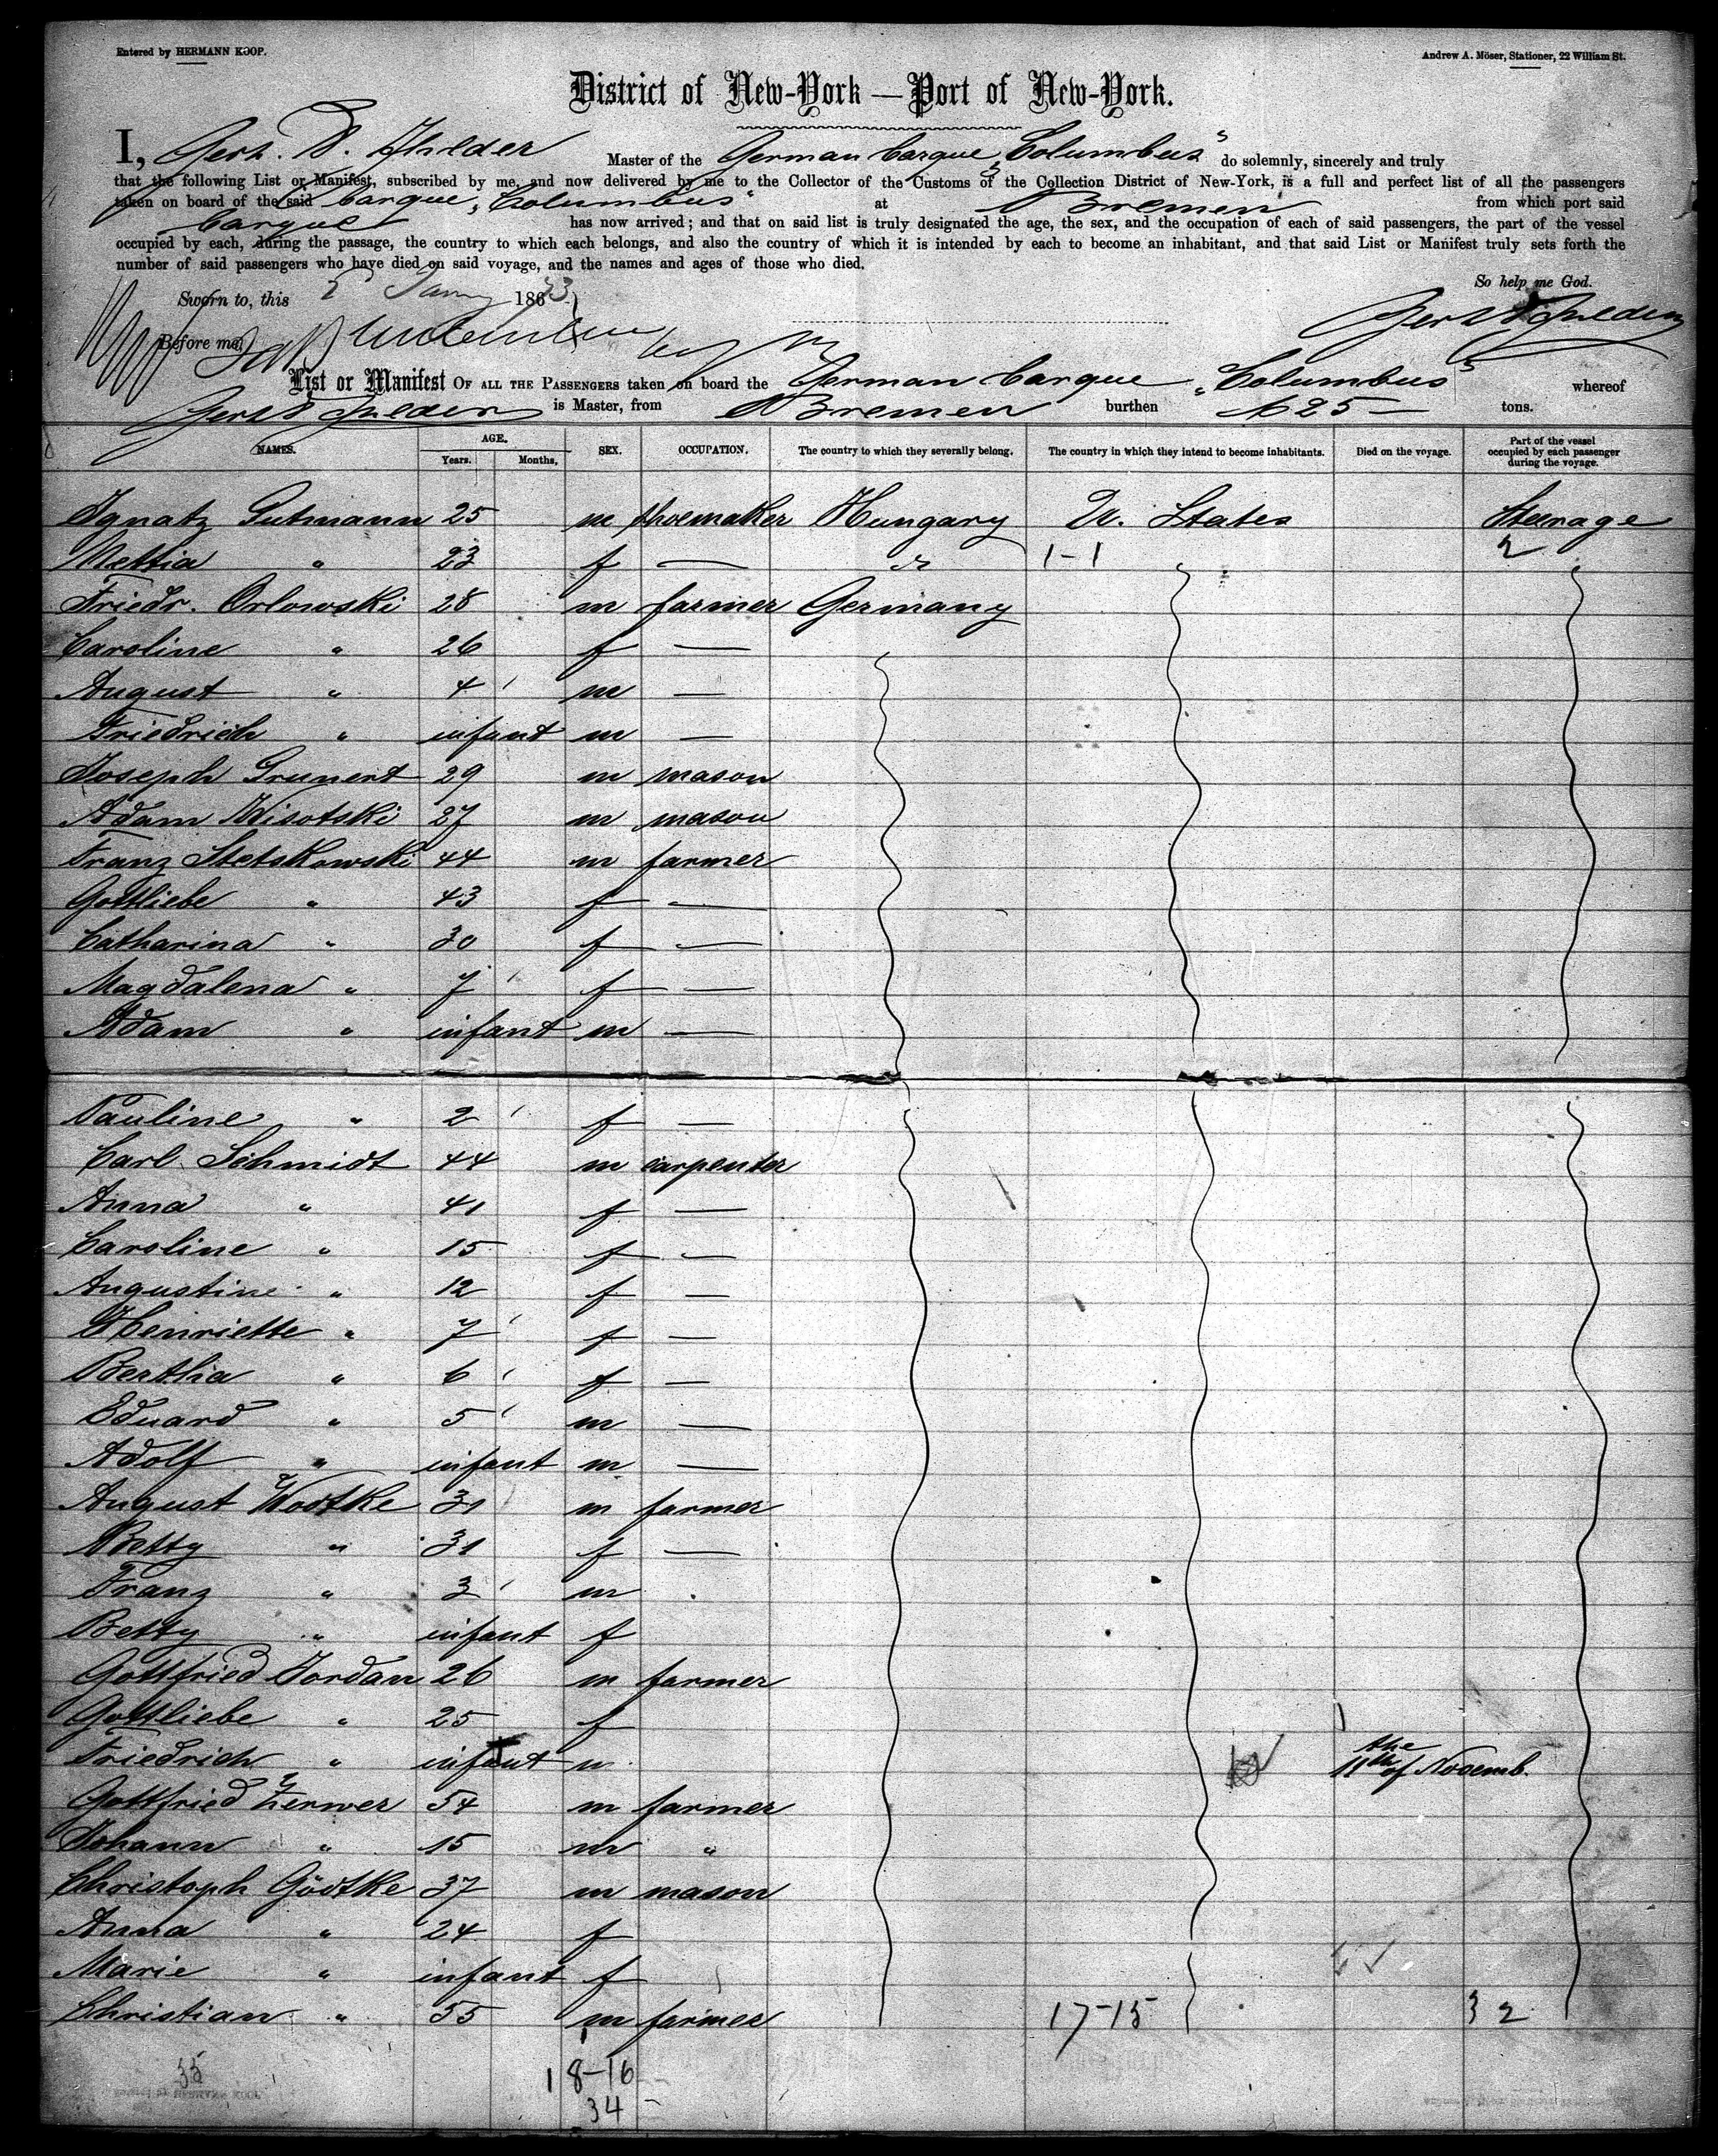 Entered by HERMANN KOOP.
Andrew A. Möser, Stationer, 22 William St.
District of New-York — Port of New-York.
I, Gerh. Master of the German barque „Columbus" do solemnly, sincerely and truly
that the following List or Manifest, subscribed by me, and now delivered by me to the Collector of the Customs of the Collection District of New-York, is a full and perfect list of all the passengers
taken on board of the said barque „Columbus" at Bremen from which port said
barque has now arrived; and that on said list is truly designated the age, the sex, and the occupation of each of said passengers, the part of the vessel
occupied by each, during the passage, the country to which each belongs, and also the country of which it is intended by each to become an inhabitant, and that said List or Manifest truly sets forth the
number of said passengers who have died on said voyage, and the names and ages of those who died.
So help me God.
Sworn to, this 2 Jany 1863
Before me,
List or Manifest OF ALL THE PASSENGERS taken on board the German barque „Columbus" whereof
is Master, from Bremen burthen 625 — tons.
NAMES. AGE. Years. Months. SEX. OCCUPATION. The country to which they severally belong. The country in which they intend to become inhabitants. Died on the voyage. Part of the vessel occupied by each passenger during the voyage.
Ignatz Gutmann 25 m shoemaker Hungary U. States Steerage
Nettia " 23 f — " 1-1 2
Friedr. Orlowski 28 m farmer Germany
Caroline " 26 f —
August " 4 m —
Friedrich " infant m —
Joseph Grunert 29 m mason
Adam Wisotski 27 m mason
Franz Stetskowski 44 m farmer
Gottliebe " 43 f —
Catharina " 30 f —
Magdalena " 7 f —
Adam " infant m —
Pauline " 2 f —
Carl Schmidt 44 m carpenter
Anna " 41 f —
Caroline " 15 f —
Augustine " 12 f —
Henriette " 7 f —
Bertha " 6 f —
Eduard " 5 m —
Adolf " infant m —
August Wodtke 31 m farmer
Betty " 31 f —
Franz " 3 m
Betty " infant f
Gottfried Jordan 26 m farmer
Gottliebe " 25 f
Friedrich " infant m the 11th of Novemb.
Gottfried Zerwer 54 m farmer
Johann " 15 m "
Christoph Gödtke 37 m mason
Anna " 24 f
Marie " infant f
Christian " 55 m farmer 17-15 32
35
18-16
34